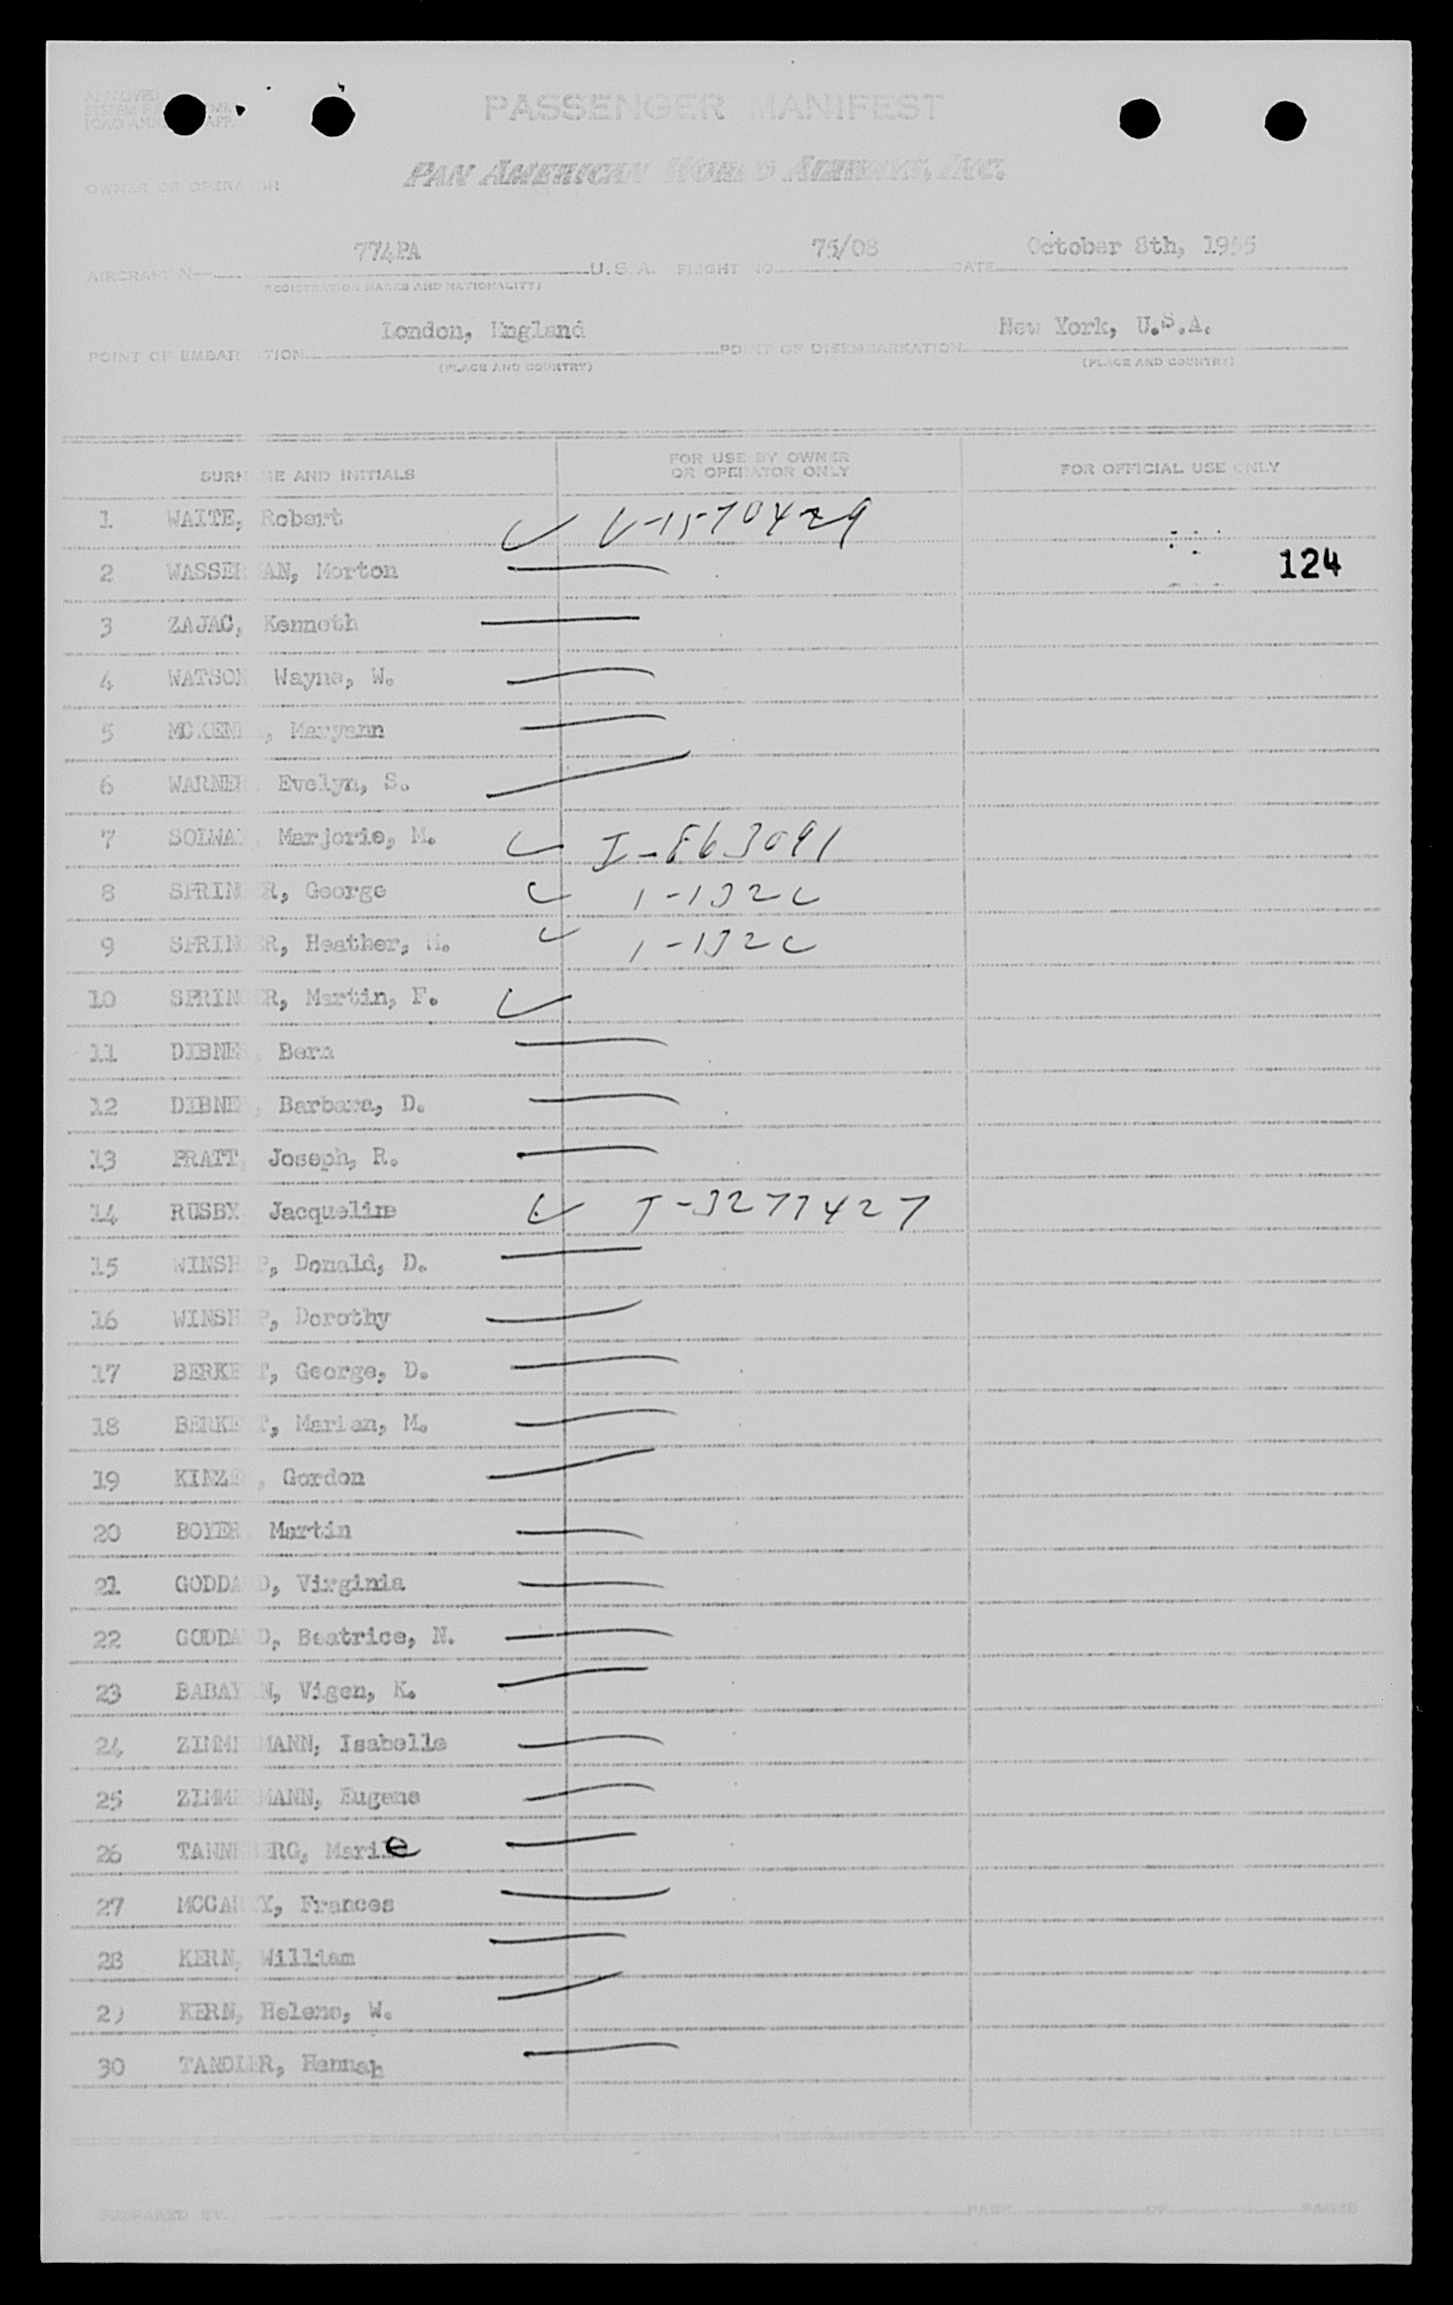 PASSENGER MANIFEST
PAN AMERICAN WORLD AIRWAYS, INC.
OWNER OR OPERATOR
774PA 75/08 October 8th, 1955
AIRCRAFT N U.S.A. FLIGHT NO. DATE
(REGISTRATION MARKS AND NATIONALITY)
London, England New York, U.S.A.
POINT OF EMBARKATION POINT OF DISEMBARKATION
(PLACE AND COUNTRY) (PLACE AND COUNTRY)
SURNAME AND INITIALS FOR USE BY OWNER OR OPERATOR ONLY FOR OFFICIAL USE ONLY
1 WAITE, Robert V-1570429
124
2 WASSERMAN, Morton
3 ZAJAC, Kenneth
4 WATSON Wayne, W.
5 Maryann
6 WARNER, Evelyn, S.
7 Marjorie, M. I-863091
8 SPRINGER, George 1-132
9 SPRINGER, Heather, M. 1-132
10 SPRINGER, Martin, F.
11 DIBNER, Bern
12 DIBNER, Barbara, D.
13 PRATT, Joseph, R.
14 RUSBY Jacqueline I-3277427
15 WINSHIP, Donald, D.
16 WINSHIP, Dorothy
17 George, D.
18 Marian, M.
19 Gordon
20 BOYER Martin
21 GODDARD, Virginia
22 GODDARD, Beatrice, N.
23 BABAYAN, Vigen, K.
24 ZIMMERMANN, Isabelle
25 ZIMMERMANN, Eugene
26 TANNEBERG, Marie
27 Frances
28 KERN, William
29 KERN, Helene, W.
30 TANDLER, Hannah
PREPARED BY PAGE OF PAGES